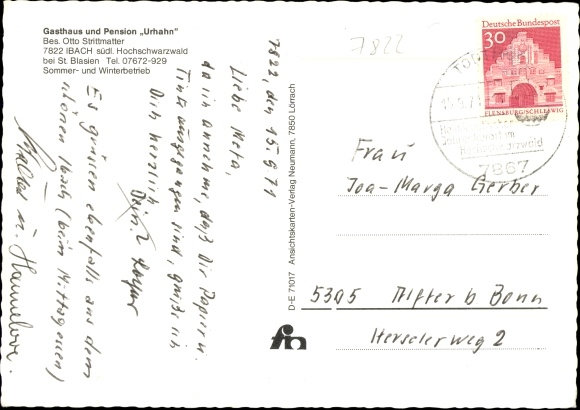 Gasthaus und Pension „Urhahn"
Bes. Otto Strittmatter
7822 IBACH südl. Hochschwarzwald
bei St. Blasien Tel. 07672-929
Sommer- und Winterbetrieb
7822, den 15.9.71
Liebe Meta,
da ich annehme, daß Dir Papier u.
Tinte ausgegangen sind, grüße ich
Dich herzlich
Dein
Es grüssen ebenfalls aus dem
schönen Ibach (beim Mittagessen)
u. Hannelore.
D-E 71017 Ansichtskarten-Verlag Neumann, 7850 Lörrach
7822
Deutsche Bundespost
30
FLENSBURG/SCHLESWIG
7867
Frau
Ioa-Marga Gerber
5305 Alfter b Bonn
Herselerweg 2
fn